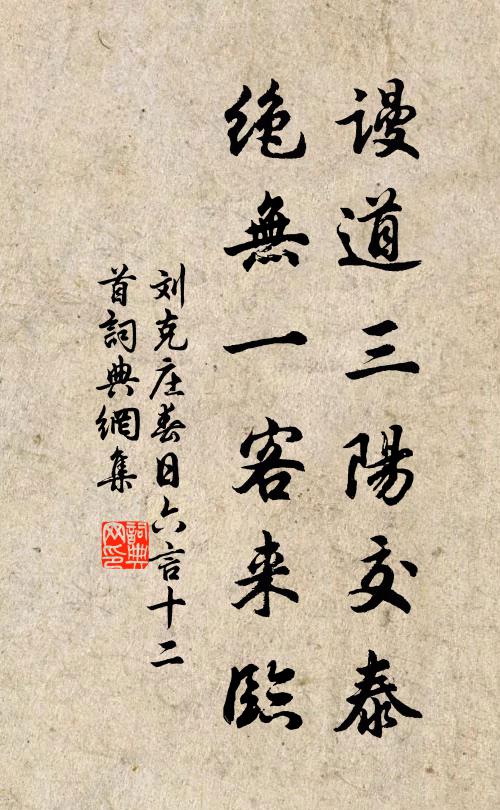 謾道三陽交泰
絶無一客来臨
刘克庄春日六言十二
首詞典網集
詞典网印